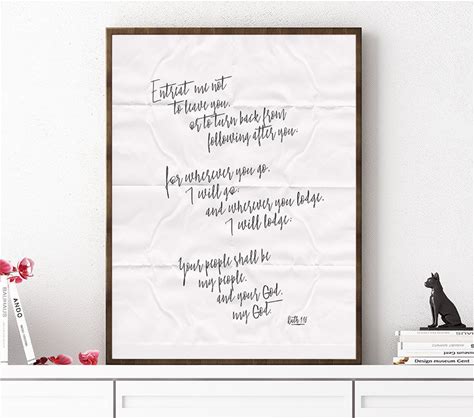 Entreat me not
to leave you,
or to turn back from
following after you.
for wherever you go,
I will go:
and wherever you lodge,
I will lodge:
Your people shall be
my people,
and your God,
my God.
Ruth 1:16
BAUHAUS
ANDO
Design museum